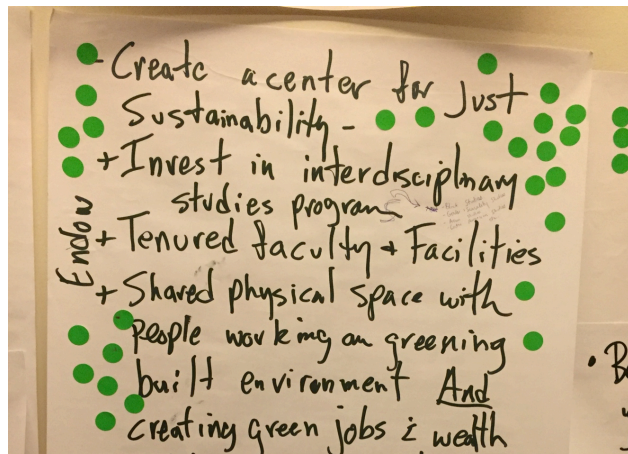 - Create a center for Just
Sustainability -
+ Invest in interdisciplinary
studies program
Endow
+ Tenured faculty + Facilities
+ Shared physical space with
people working on greening
built environment And
creating green jobs & wealth